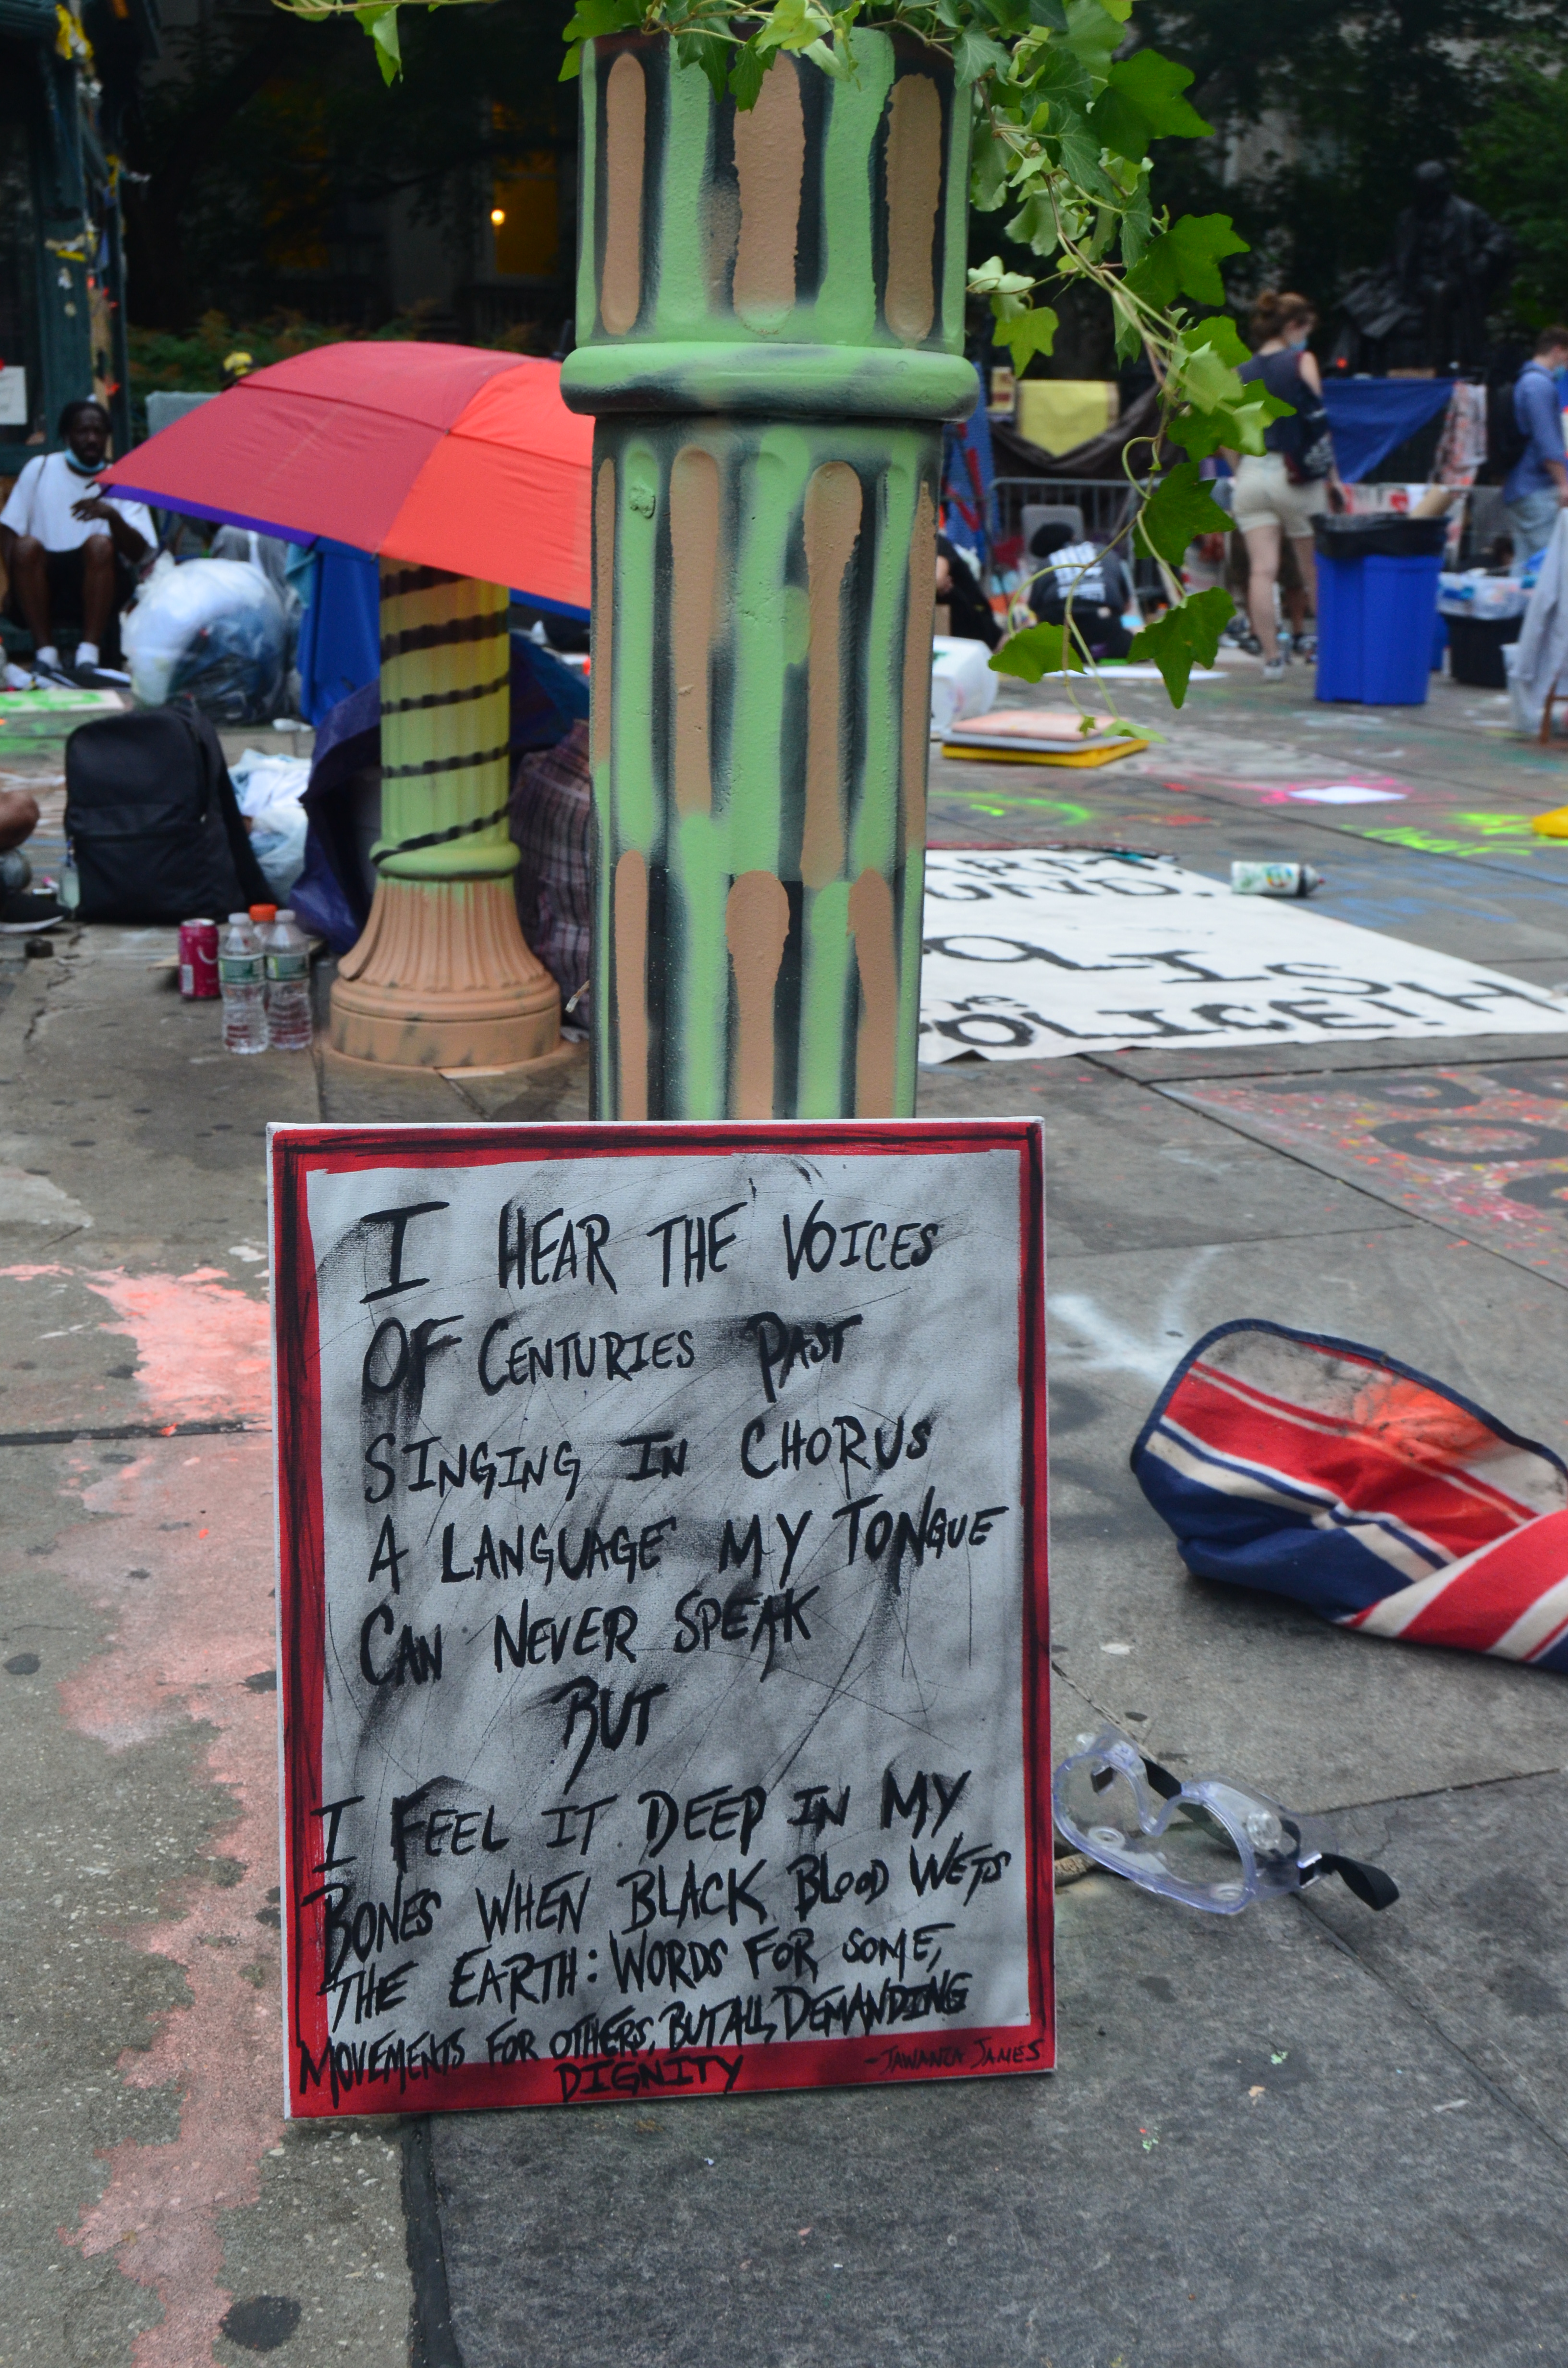 I HEAR THE VOICES
OF CENTURIES PAST
SINGING IN CHORUS
A LANGUAGE MY TONGUE
CAN NEVER SPEAK
BUT
I FEEL IT DEEP IN MY
BONES WHEN BLACK BLOOD WETS
THE EARTH: WORDS FOR SOME,
MOVEMENTS FOR OTHERS, BUT ALL DEMANDING
DIGNITY
-JAWANZA JAMES
OLISH
THE
POLICE!